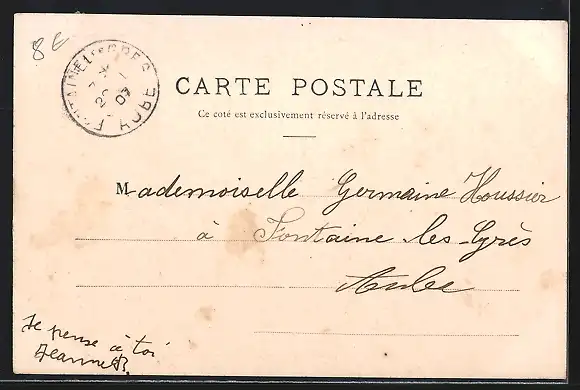 8 €
FONTAINE-LES-GRES
20
03
AUBE
CARTE POSTALE
Ce coté est exclusivement réservé à l'adresse
Mademoiselle Germaine Houssier
à Fontaine-les-Grès
Aube
Je pense à toi